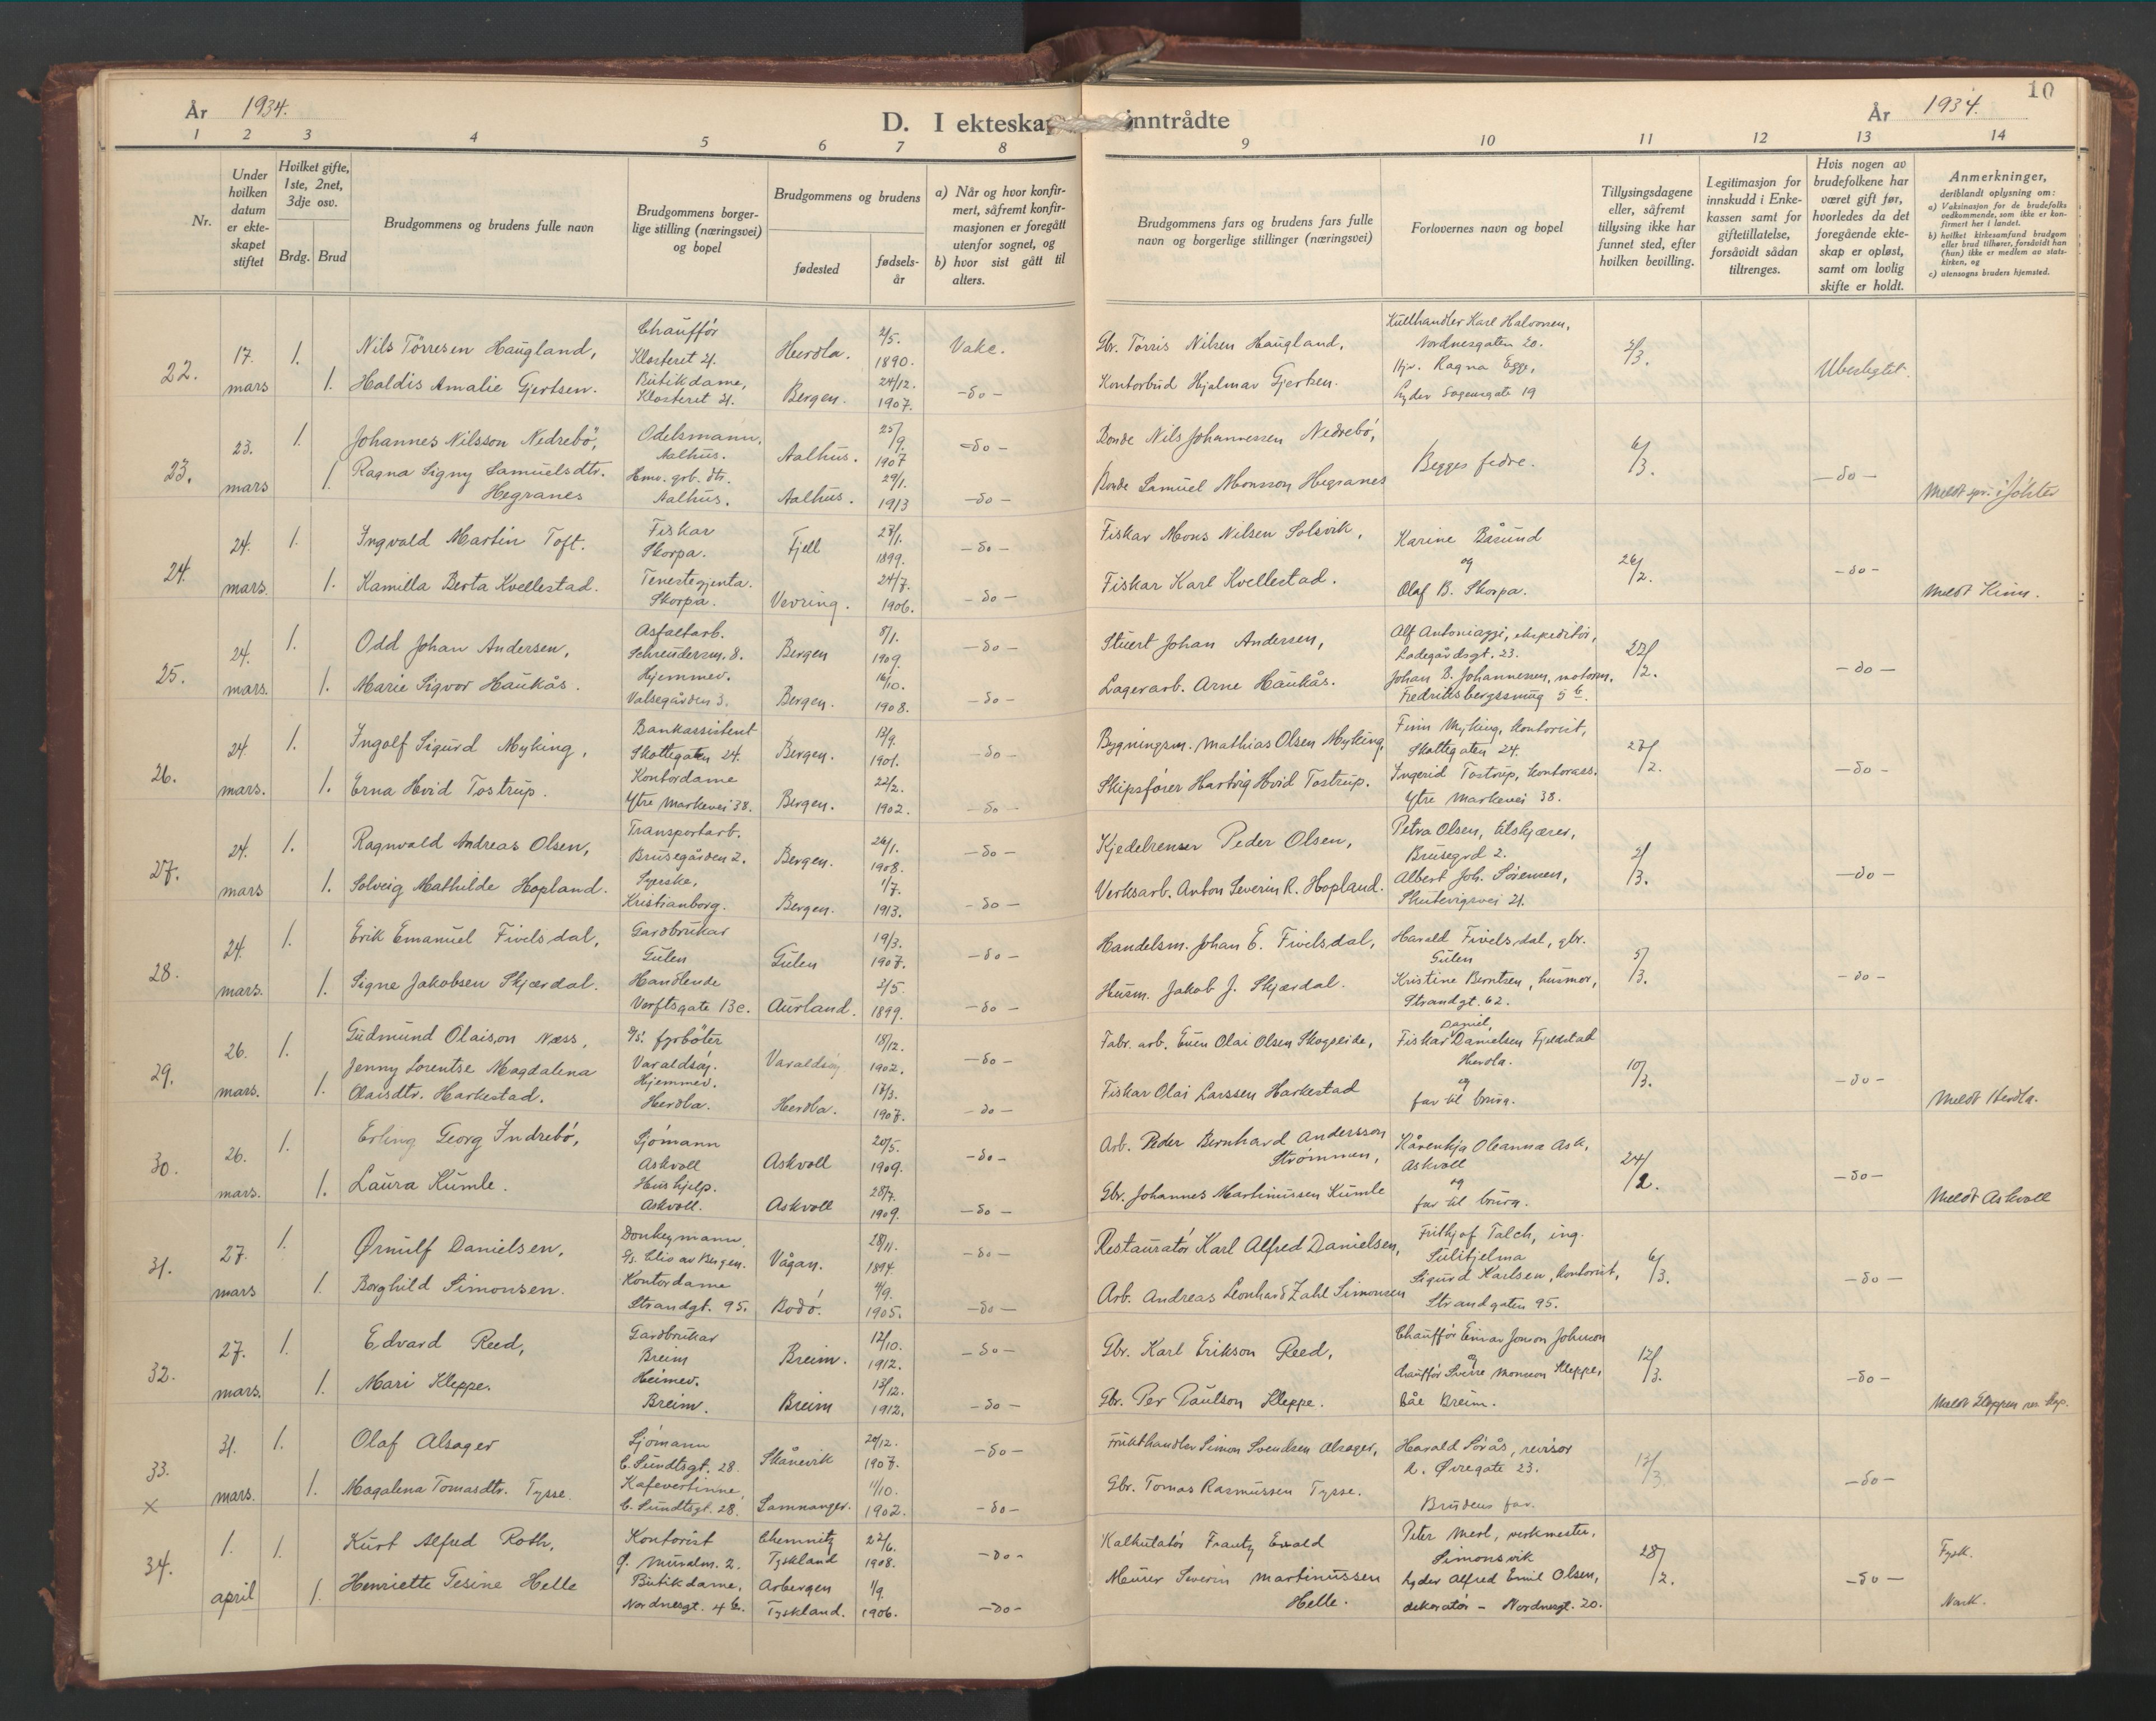 År 1934.
D. I ekteska inntrådte
År 1934.
10
1 2 3 4 5 6 7 8 9 10 11 12 13 14
Nr.
Under hvilken datum er ekteskapet stiftet
Hvilket gifte, 1ste, 2net, 3dje osv.
Brdg. Brud
Brudgommens og brudens fulle navn
Brudgommens borgerlige stilling (næringsvei) og bopel
Brudgommens og brudens
fødested
fødselsår
a) Når og hvor konfirmert, såfremt konfirmasjonen er foregått utenfor sognet, og
b) hvor sist gått til alters.
Brudgommens fars og brudens fars fulle navn og borgerlige stillinger (næringsvei)
Forlovernes navn og bopel
Tillysingsdagene eller, såfremt tillysing ikke har funnet sted, efter hvilken bevilling.
Legitimasjon for innskudd i Enkekassen samt for giftetillatelse, forsåvidt sådan tiltrenges.
Hvis nogen av brudefolkene har været gift før, hvorledes da det foregående ekteskap er opløst, samt om lovlig skifte er holdt.
Anmerkninger,
deriblandt oplysning om:
a) Vaksinasjon for de brudefolks vedkommende, som ikke er konfirmert her i landet.
b) hvilket kirkesamfund brudgom eller brud tilhører, forsåvidt han (hun) ikke er medlem av statskirken, og
c) utensogns bruders hjemsted.
22. 17. mars 1. Nils Törresen Haugland, Chauffør Klosteret 21. Herdla. 2/5. 1890. Vake. Gbr. Törris Nilsen Haugland, Kullhandler Karl Halvorsen, Nordnesgaten 20. 2/3. Ubeslegtet.
1. Haldis Amalie Gjertsen. Butikdame, Klosteret 21. Bergen. 24/12. 1907. -do- Kontorbud Hjalmar Gjertsen. Hjv. Ragna Egge, Lyder Sagensgate 19
23. 23. mars 1. Johannes Nilsson Nedrebö, Odelsmann, Aalhus. Aalhus. 25/9. 1907 -do- Bonde Nils Johannessen Nedrebö, Begges fedre. 6/3. -do-
1. Ragna Signy Samuelsdtr. Hegranes Hmv. grb. dtr. Aalhus. Aalhus. 29/1. 1913 -do- Bonde Samuel Monsson Hegranes Meldt spr. i Jölster
24. 24. mars. 1. Ingvald Martin Toft. Fiskar Skorpa. Fjell 27/1. 1899. -do- Fiskar Mons Nilsen Solsvik, Karine Båsund og 26/2. -do-
1. Kamilla Berta Kvellestad. Tenestegjenta. Skorpa. Vevring. 24/7. 1906. -do- Fiskar Karl Kvellestad. Olaf B. Skorpa. Meldt Kinn.
25. 24. mars. 1. Odd Johan Andersen, Asfaltarb. Schreudersm. 8. Bergen 8/1. 1909. -do- Stuert Johan Andersen, Alf Antoniazzi, ekspeditör, Ladegårdsgt. 23. 27/2. -do-
1. Marie Sigvor Haukås. Hjemmev. Valsegården 3. Bergen. 16/10. 1908. -do- Lagerarb. Arne Haukås. Johan B. Johannessen, motorm, Fredriksbergssmug 5 b.
26. 24. mars. 1. Ingolf Sigurd Myking, Bankassistent Skottegaten 24. Bergen. 13/9. 1901. -do- Bygningsm. Mathias Olsen Myking, Finn Myking, kontorist, Skottegaten 24. 27/2. -do-
1. Erna Hvid Tostrup. Kontordame Ytre Markevei 38. Bergen. 22/2. 1902. -do- Skipsförer Hartvig Hvid Tostrup. Ingerid Tostrup, kontorass. Ytre Markevei 38.
27. 24. mars 1. Ragnvald Andreas Olsen, Transportarb. Brusegården 2. Bergen. 26/1. 1908. -do- Kjedelrenser Peder Olsen, Petra Olsen, tilskjærer, Brusegrd 2. 2/3. -do-
1. Solveig Mathilde Hopland. Syerske, Kristianborg. Bergen. 1/7. 1913. -do- Verksarb. Anton Severin R. Hopland. Albert Joh. Sörensen, Skutevigsvei 21.
28. 24. mars. 1. Erik Emanuel Fivelsdal, Gardbrukar Gulen Gulen 19/3. 1907. -do- Handelsm. Johan E. Fivelsdal, Harald Fivelsdal, gbr. Gulen 5/3. -do-
1. Signe Jakobsen Skjærdal. Handlende Verftsgate 13c. Aurland. 2/5. 1899. -do- Husm. Jakob J. Skjærdal. Kristine Berntsen, husmor, Strandgt. 62.
29. 26. mars. 1. Gudmund Olaison Næss, D/s. fyrböter Varaldsöy. Varaldsöy 18/12. 1902. -do- Fabr. arb. Even Olai Olsen Skogseide, Fiskar Daniel Danielsen Fjeldstad Herdla. og 10/3. -do-
1. Jenny Lorentse Magdalena Olaisdtr. Harkestad. Hjemmev. Herdla. Herdla. 17/3. 1907. -do- Fiskar Olai Larssen Harkestad far til brura. Meldt Herdla.
30. 26. mars. 1. Erling Georg Indrebö, Sjömann Askvoll Askvoll 20/5. 1909. -do- Arb. Peder Bernhard Andersson Strömmen, Kårenkja Oleanna Ask, Askvoll og 24/2. -do-
1. Laura Kumle. Hushjelp. Askvoll. Askvoll 28/7. 1909. -do- Gbr. Johannes Martinussen Kumle far til brura. Meldt Askvoll
31. 27. mars 1. Ørnulf Danielsen, Donkeymann, S/s. Clio av Bergen. Vågan. 28/11. 1894. -do- Restauratör Karl Alfred Danielsen, Frithjof Talch, ing. Sulitjelma 6/3. -do-
1. Borghild Simonsen. Kontordame Strandgt. 95. Bodö. 4/9. 1905. -do- Arb. Andreas Leonhard Zahl Simonsen Sigurd Karlsen, kontorist, Strandgaten 95.
32. 27. mars. 1. Edvard Reed, Gardbrukar Breim Breim. 12/10. 1912. -do- Gbr. Karl Erikson Reed, Chaufför Einar Jonson Johnson og 12/3. -do-
1. Mari Kleppe. Heimev. Breim. Breim 13/12. 1912. -do- Gbr. Per Paulson Kleppe. chaufför Sverre Monsson Kleppe, båe Breim. Meldt
33. x 31. mars. 1. Olaf Alsager Sjömann C. Sundtsgt. 28. Skånevik 20/12. 1907. -do- Frukthandler Simon Svendsen Alsager, Harald Sörås, revisor L. Øvregate 23. 13/3 -do-
1. Magdalena Tomasdtr. Tysse. Kafevertinne, C. Sundtsgt. 28. Samnanger. 11/10. 1902. -do- Gbr. Tomas Rasmussen Tysse. Brudens far.
34. 1. april 1. Kurt Alfred Roth, Kontorist J. Muralm. 2. Chemnitz Tyskland 22/6. 1908. -do- Kalkulatör Frantz Ewald Peter Merl, verkmester, Simonsvik 28/2. -do- Tysk.
1. Henriette Tesine Helle Butikdame, Nordnesgt. 4 b. Arbergen Tyskland. 1/9. 1906. -do- Murer Severin Martinussen Helle. Lyder Alfred Emil Olsen, dekoratör - Nordnesgt. 20. Norsk.